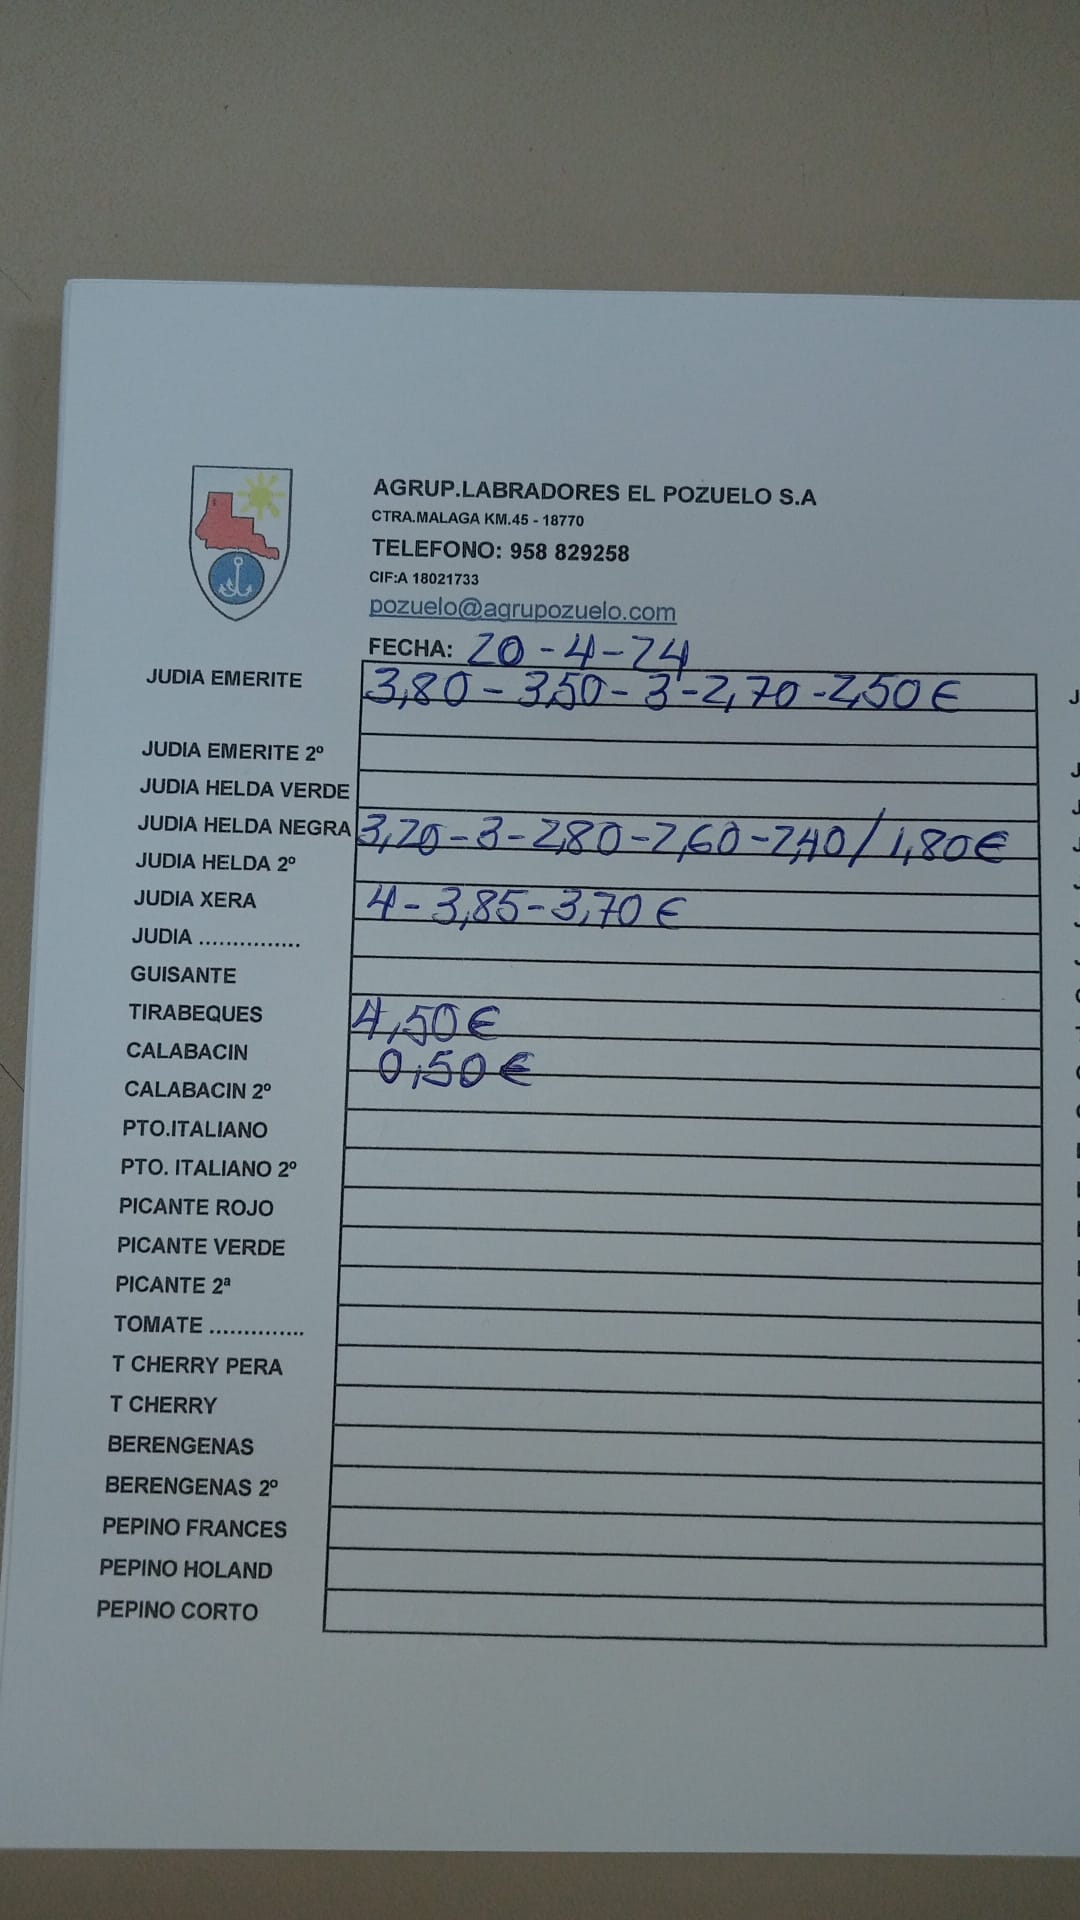 AGRUP.LABRADORES EL POZUELO S.A
CTRA.MALAGA KM.45 - 18770
TELEFONO: 958 829258
CIF:A 18021733
pozuelo@agrupozuelo.com
FECHA: 20-4-24
JUDIA EMERITE 3,80 - 3,50 - 3 - 2,70 - 2,50 €
JUDIA EMERITE 2º
JUDIA HELDA VERDE
JUDIA HELDA NEGRA 3,20 - 3 - 2,80 - 2,60 - 2,40 / 1,80 €
JUDIA HELDA 2º
JUDIA XERA 4 - 3,85 - 3,70 €
JUDIA ...............
GUISANTE
TIRABEQUES 4,50 €
CALABACIN 0,50 €
CALABACIN 2º
PTO.ITALIANO
PTO. ITALIANO 2º
PICANTE ROJO
PICANTE VERDE
PICANTE 2ª
TOMATE ..............
T CHERRY PERA
T CHERRY
BERENGENAS
BERENGENAS 2º
PEPINO FRANCES
PEPINO HOLAND
PEPINO CORTO